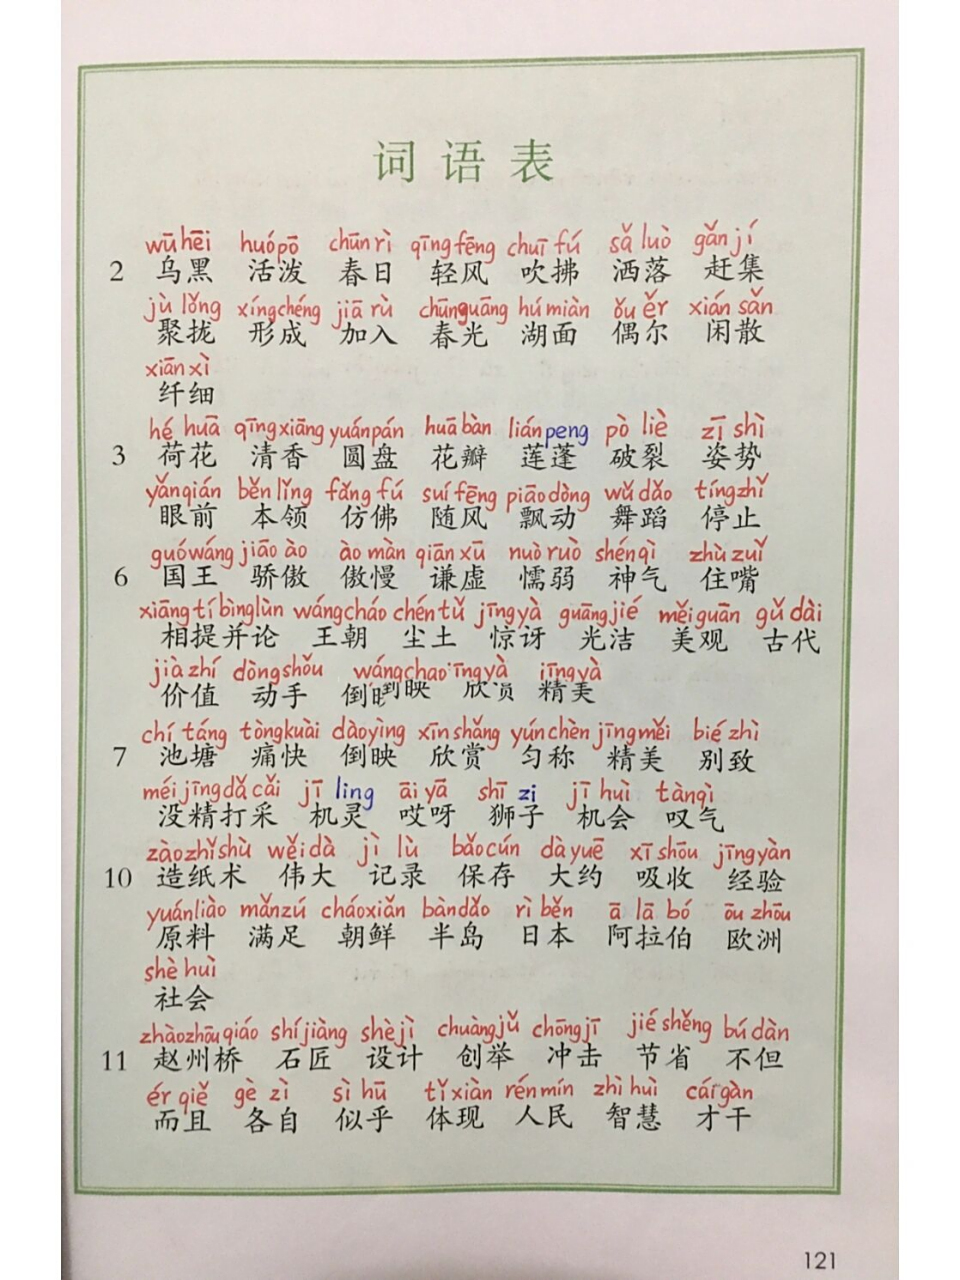 词语表
wūhēi huópō chūnrì qīngfēng chuīfú sǎluò gǎnjí
2 乌黑 活泼 春日 轻风 吹拂 洒落 赶集
jùlǒng xíngchéng jiārù chūnguāng húmiàn ǒuěr xiánsǎn
聚拢 形成 加入 春光 湖面 偶尔 闲散
xiānxì
纤细
héhuā qīngxiāng yuánpán huābàn liánpeng pòliè zīshì
3 荷花 清香 圆盘 花瓣 莲蓬 破裂 姿势
yǎnqián běnlǐng fǎngfú suífēng piāodòng wǔdǎo tíngzhǐ
眼前 本领 仿佛 随风 飘动 舞蹈 停止
guówáng jiāoào àomàn qiānxū nuòruò shénqì zhùzuǐ
6 国王 骄傲 傲慢 谦虚 懦弱 神气 住嘴
xiāngtíbìnglùn wángcháo chéntǔ jīngyà guāngjié měiguān gǔdài
相提并论 王朝 尘土 惊讶 光洁 美观 古代
jiàzhí dòngshǒu wángchao īngyà jīngyà
价值 动手 倒 映 欣 精美
chítáng tòngkuài dàoyìng xīnshǎng yúnchèn jīngměi biézhì
7 池塘 痛快 倒映 欣赏 匀称 精美 别致
méijīngdǎcǎi jīling āiyā shīzi jīhuì tànqì
没精打采 机灵 哎呀 狮子 机会 叹气
zàozhǐshù wěidà jìlù bǎocún dàyuē xīshōu jīngyàn
10 造纸术 伟大 记录 保存 大约 吸收 经验
yuánliào mǎnzú cháoxiǎn bàndǎo rìběn ālābó ōuzhōu
原料 满足 朝鲜 半岛 日本 阿拉伯 欧洲
shèhuì
社会
zhàozhōuqiáo shíjiàng shèjì chuàngjǔ chōngjī jiéshěng búdàn
11 赵州桥 石匠 设计 创举 冲击 节省 不但
érqiě gèzì sìhū tǐxiàn rénmín zhìhuì cáigàn
而且 各自 似乎 体现 人民 智慧 才干
121